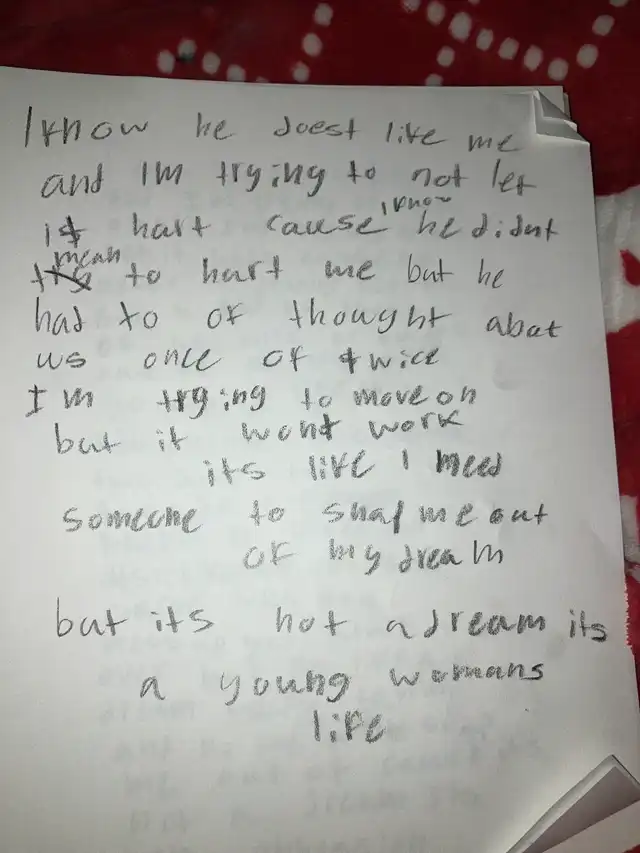 I know he doest like me
and Im trying to not let
it hart cause I know he didnt
mean to hart me but he
had to of thought abat
us once of twice
Im trying to move on
but it wont work
its like I need
someone to snap me out
of my dream
but its not a dream its
a young womans
life